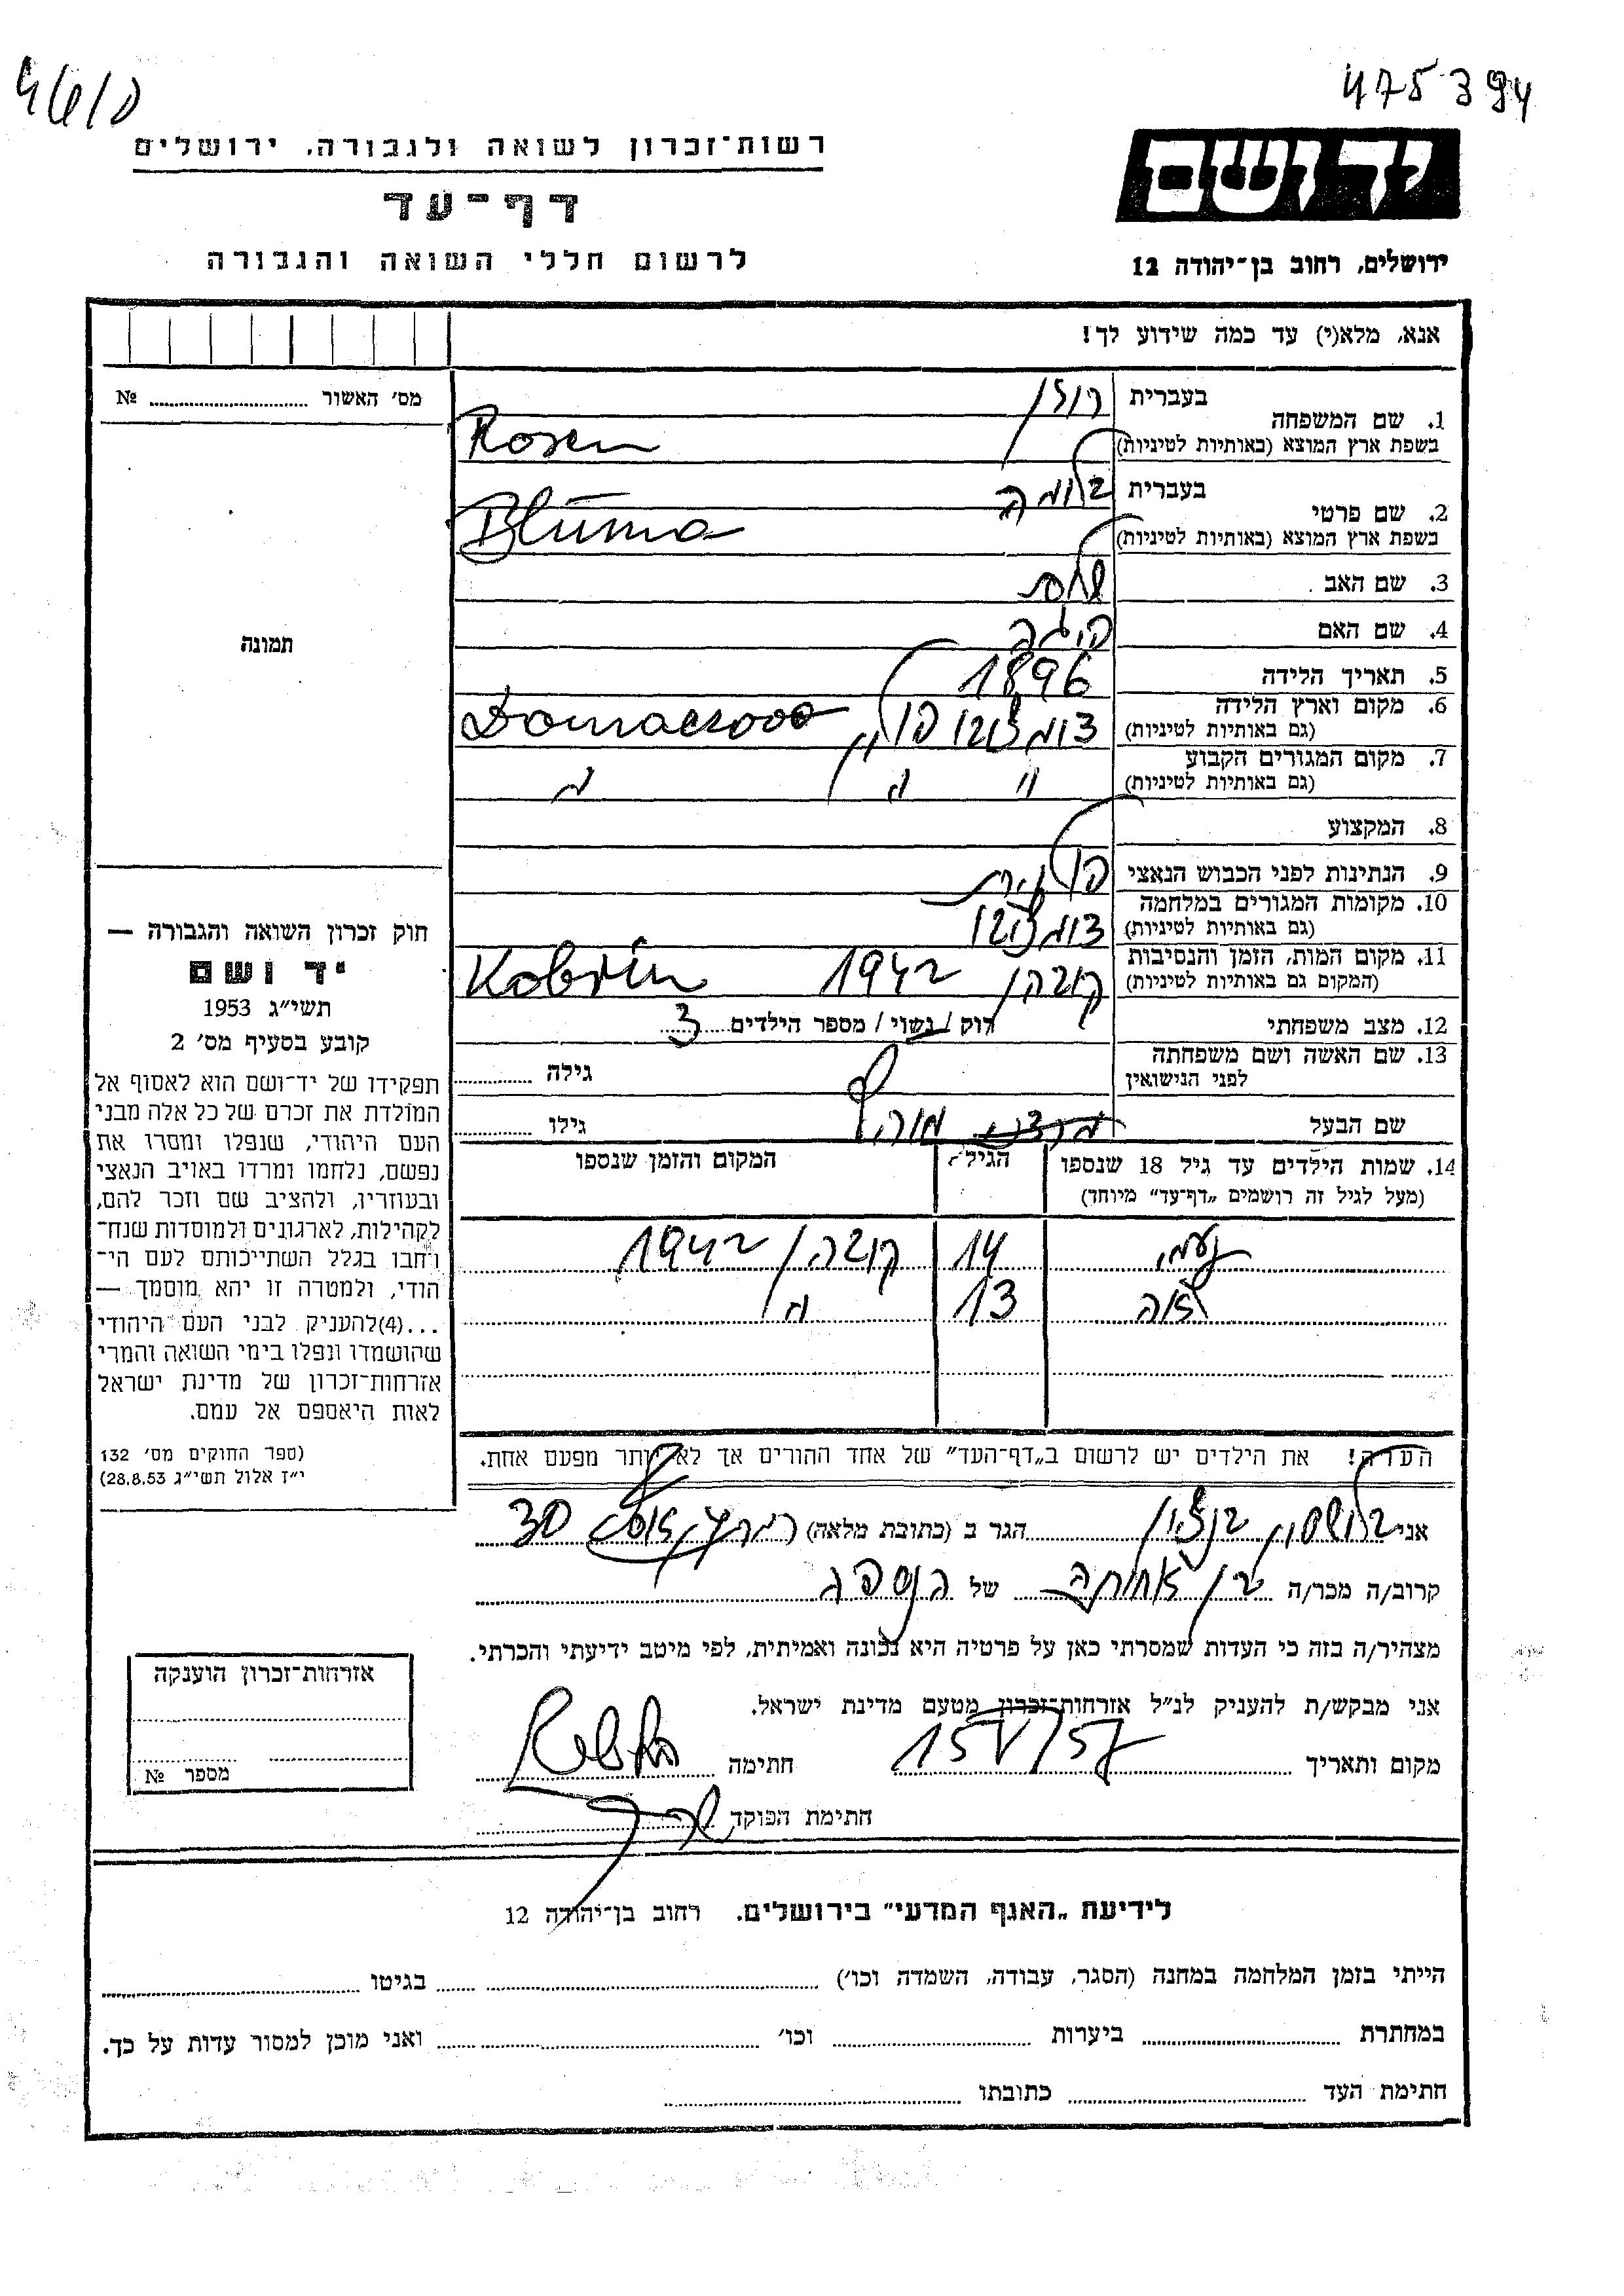 475394
רשות־זכרון לשואה ולגבורה, ירושלים
ידושם
דף־עד
לרשום חללי השואה והגבורה
ירושלים, רחוב בן־יהודה 12
אנא, מלא(י) עד כמה שידוע לך!
מס׳ האשור № 
1. שם המשפחה
בעברית רוזן
בשפת ארץ המוצא (באותיות לטיניות) Rosen
2. שם פרטי
בעברית בלומה
בשפת ארץ המוצא (באותיות לטיניות) Bluma
3. שם האב
4. שם האם
5. תאריך הלידה 1896
6. מקום וארץ הלידה
(גם באותיות לטיניות) דומצ׳בו פולין Domaczovo
7. מקום המגורים הקבוע
(גם באותיות לטיניות) " " "
8. המקצוע
9. הנתינות לפני הכבוש הנאצי פולנית
10. מקומות המגורים במלחמה
(גם באותיות לטיניות) דומצ׳בו
11. מקום המות, הזמן והנסיבות
(המקום גם באותיות לטיניות) קוברין 1942 Kobrin
12. מצב משפחתי רוק / נשוי / מספר הילדים 3
13. שם האשה ושם משפחתה
לפני הנישואין גילה
שם הבעל גילו
14. שמות הילדים עד גיל 18 שנספו
(מעל לגיל זה רושמים „דף־עד" מיוחד)
הגיל
המקום והזמן שנספו
נעמי 14 קוברין 1942
לאה 13 "
הערה! את הילדים יש לרשום ב„דף־העד" של אחד ההורים אך לא יותר מפעם אחת.
אני בן ציון הגר ב (כתובת מלאה) 30
קרוב/ה מכר/ה בן אחותה של הנספה
מצהיר/ה בזה כי העדות שמסרתי כאן על פרטיה היא נכונה ואמיתית, לפי מיטב ידיעתי והכרתי.
אני מבקש/ת להעניק לנ״ל אזרחות־זכרון מטעם מדינת ישראל.
מקום ותאריך 15 V/57 חתימה
חתימת הפוקד
תמונה
חוק זכרון השואה והגבורה —
יד ושם
תשי״ג 1953
קובע בסעיף מס׳ 2
תפקידו של יד־ושם הוא לאסוף אל
המולדת את זכרם של כל אלה מבני
העם היהודי, שנפלו ומסרו את
נפשם, נלחמו ומרדו באויב הנאצי
ובעוזריו, ולהציב שם וזכר להם,
לקהילות, לארגונים ולמוסדות שנח־
רבו בגלל השתייכותם לעם הי־
הודי, ולמטרה זו יהא מוסמך —
...(4)להעניק לבני העם היהודי
שהושמדו ונפלו בימי השואה והמרי
אזרחות־זכרון של מדינת ישראל
לאות היאספם אל עמם.
(ספר החוקים מס׳ 132
י״ז אלול תשי״ג 28.8.53)
אזרחות־זכרון הוענקה
מספר №
לידיעת „האגף המדעי" בירושלים. רחוב בן־יהודה 12
הייתי בזמן המלחמה במחנה (הסגר, עבודה, השמדה וכו׳) בגיטו
במחתרת ביערות וכו׳ ואני מוכן למסור עדות על כך.
חתימת העד כתובתו